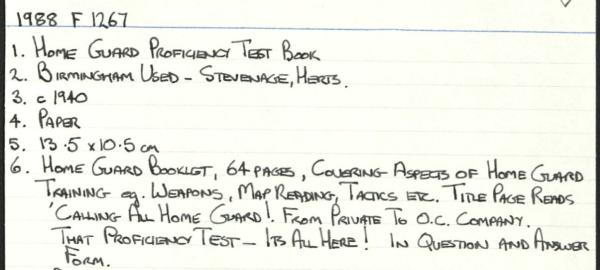 1988 F 1267
1. HOME GUARD PROFICIENCY TEST BOOK
2. BIRMINGHAM USED - STEVENAGE, HERTS.
3. c 1940
4. PAPER
5. 13.5 x 10.5 cm
6. HOME GUARD BOOKLET, 64 PAGES, COVERING ASPECTS OF HOME GUARD
TRAINING eg. WEAPONS, MAP READING, TACTICS ETC. TITLE PAGE READS
'CALLING ALL HOME GUARD!. FROM PRIVATE TO O.C. COMPANY.
THAT PROFICIENCY TEST - ITS ALL HERE! IN QUESTION AND ANSWER
FORM.